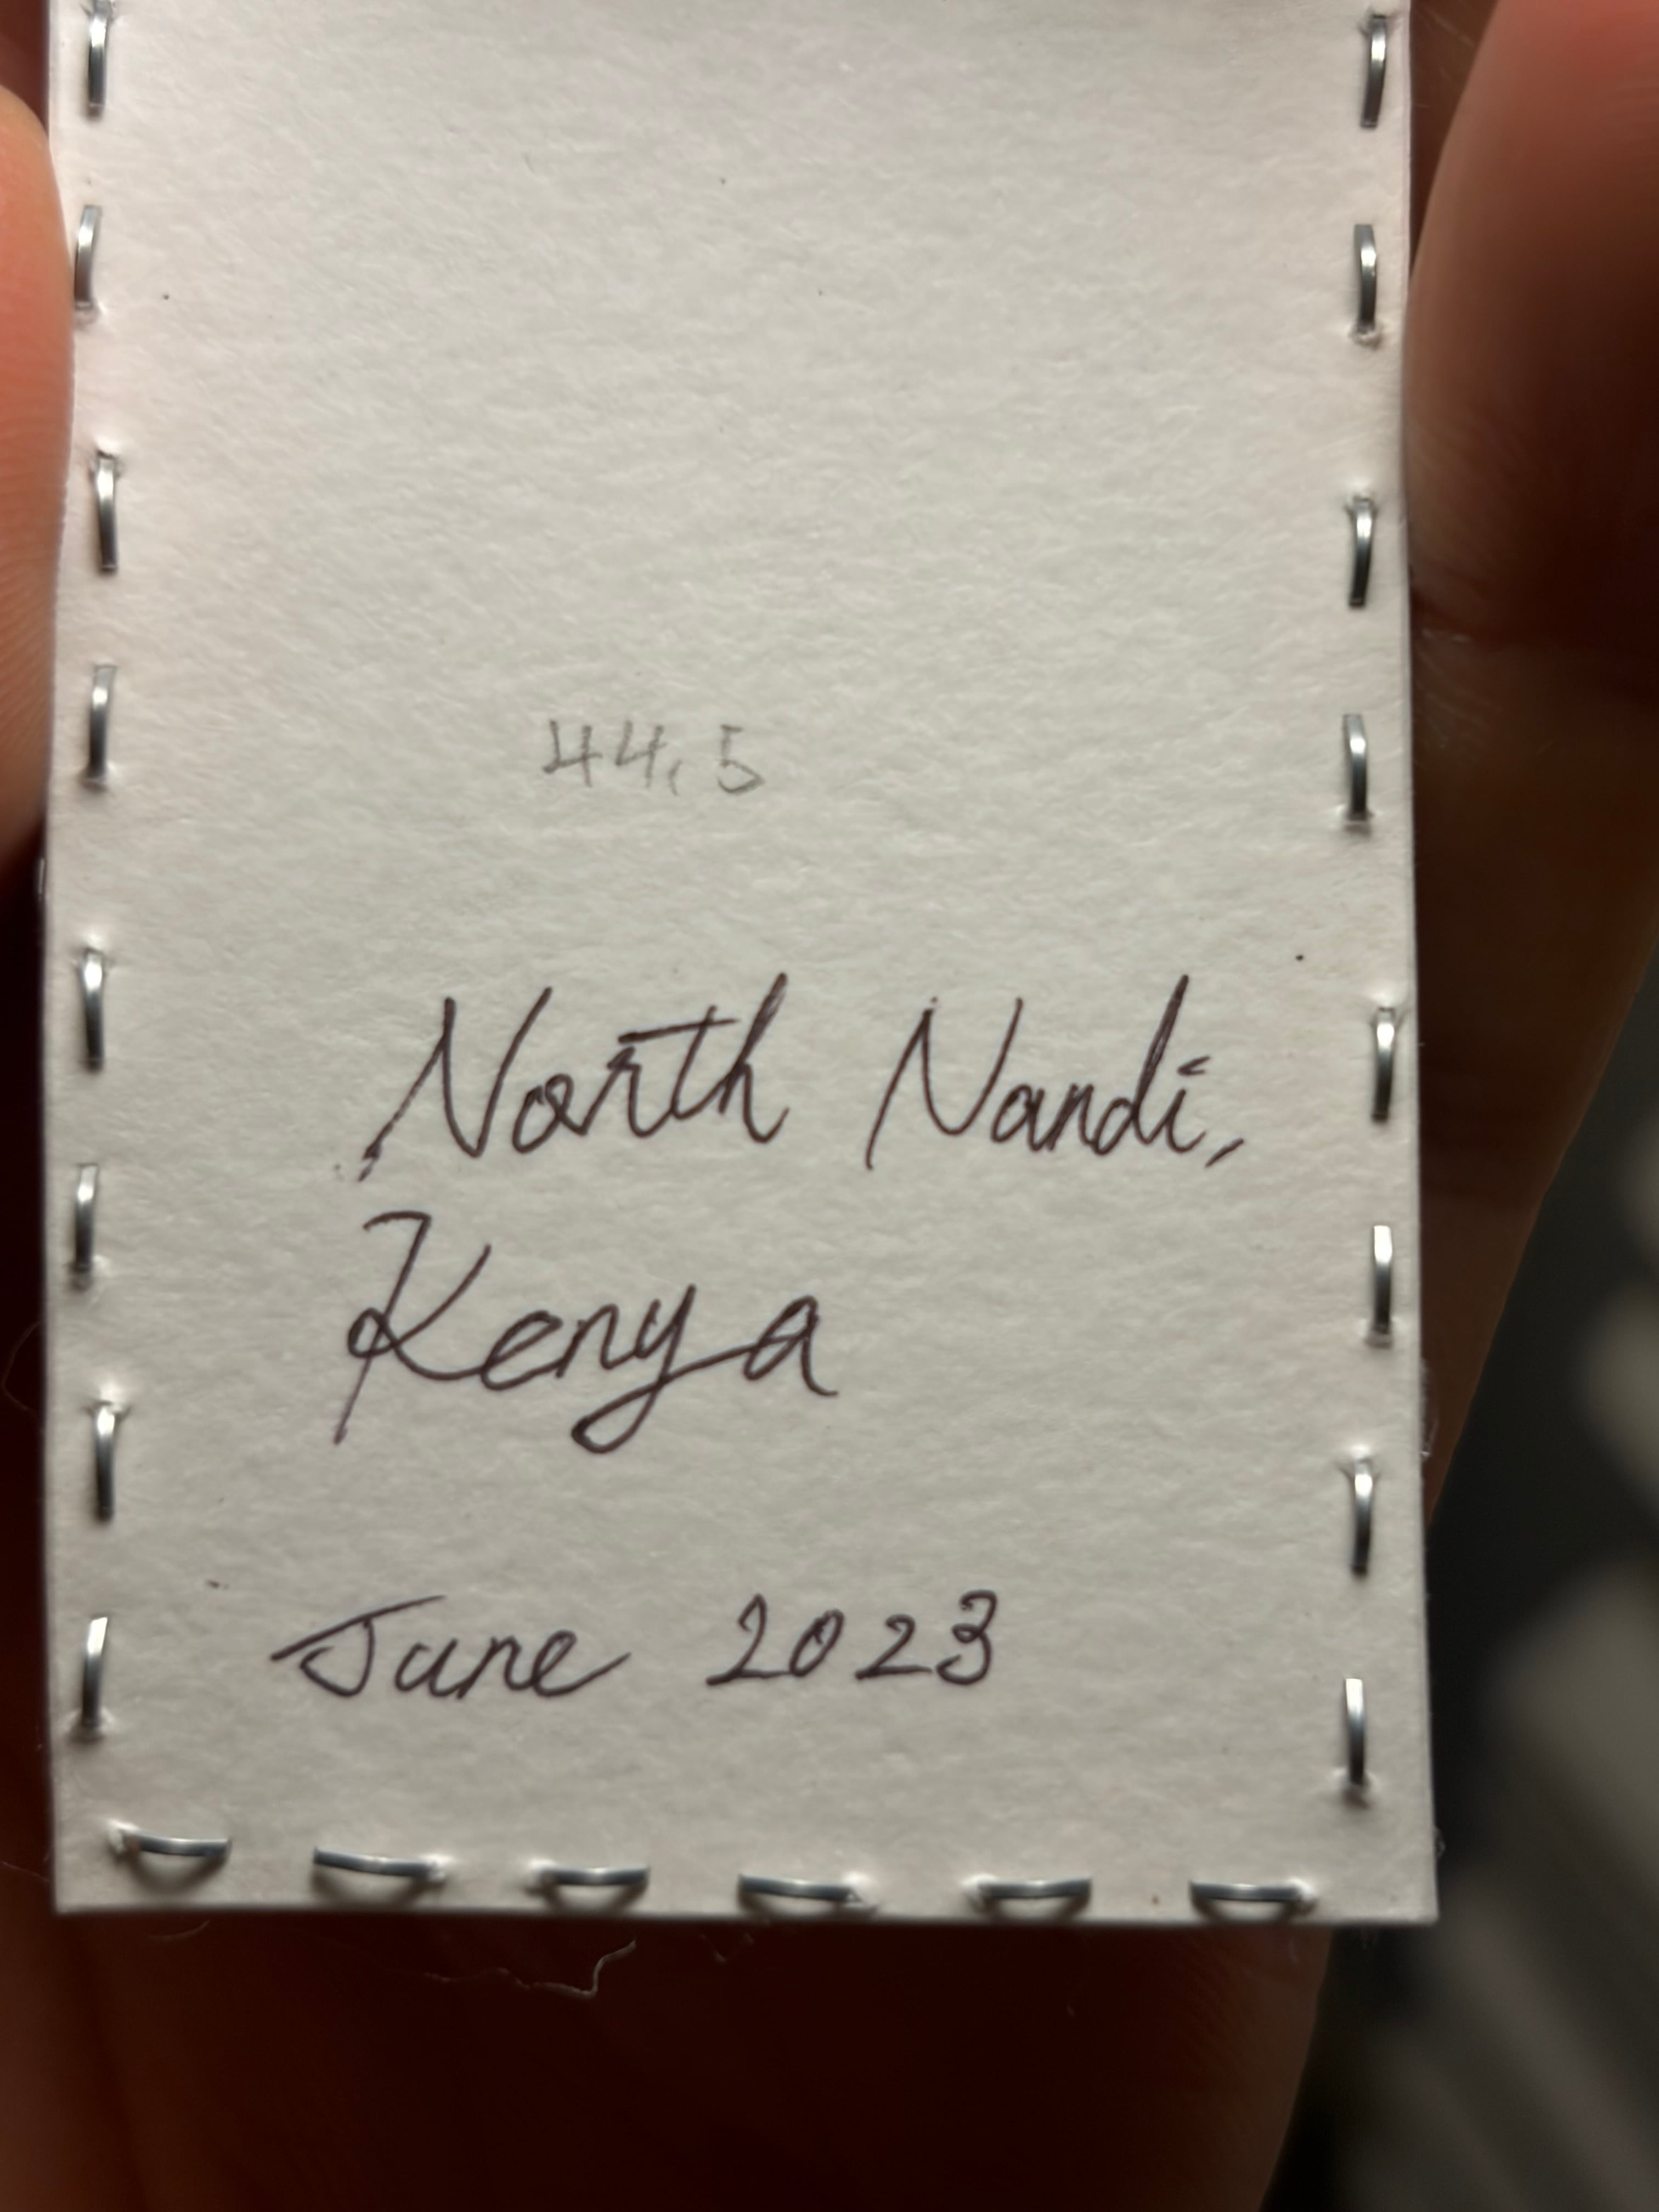 44,5
North Nandi,
Kenya
June 2023